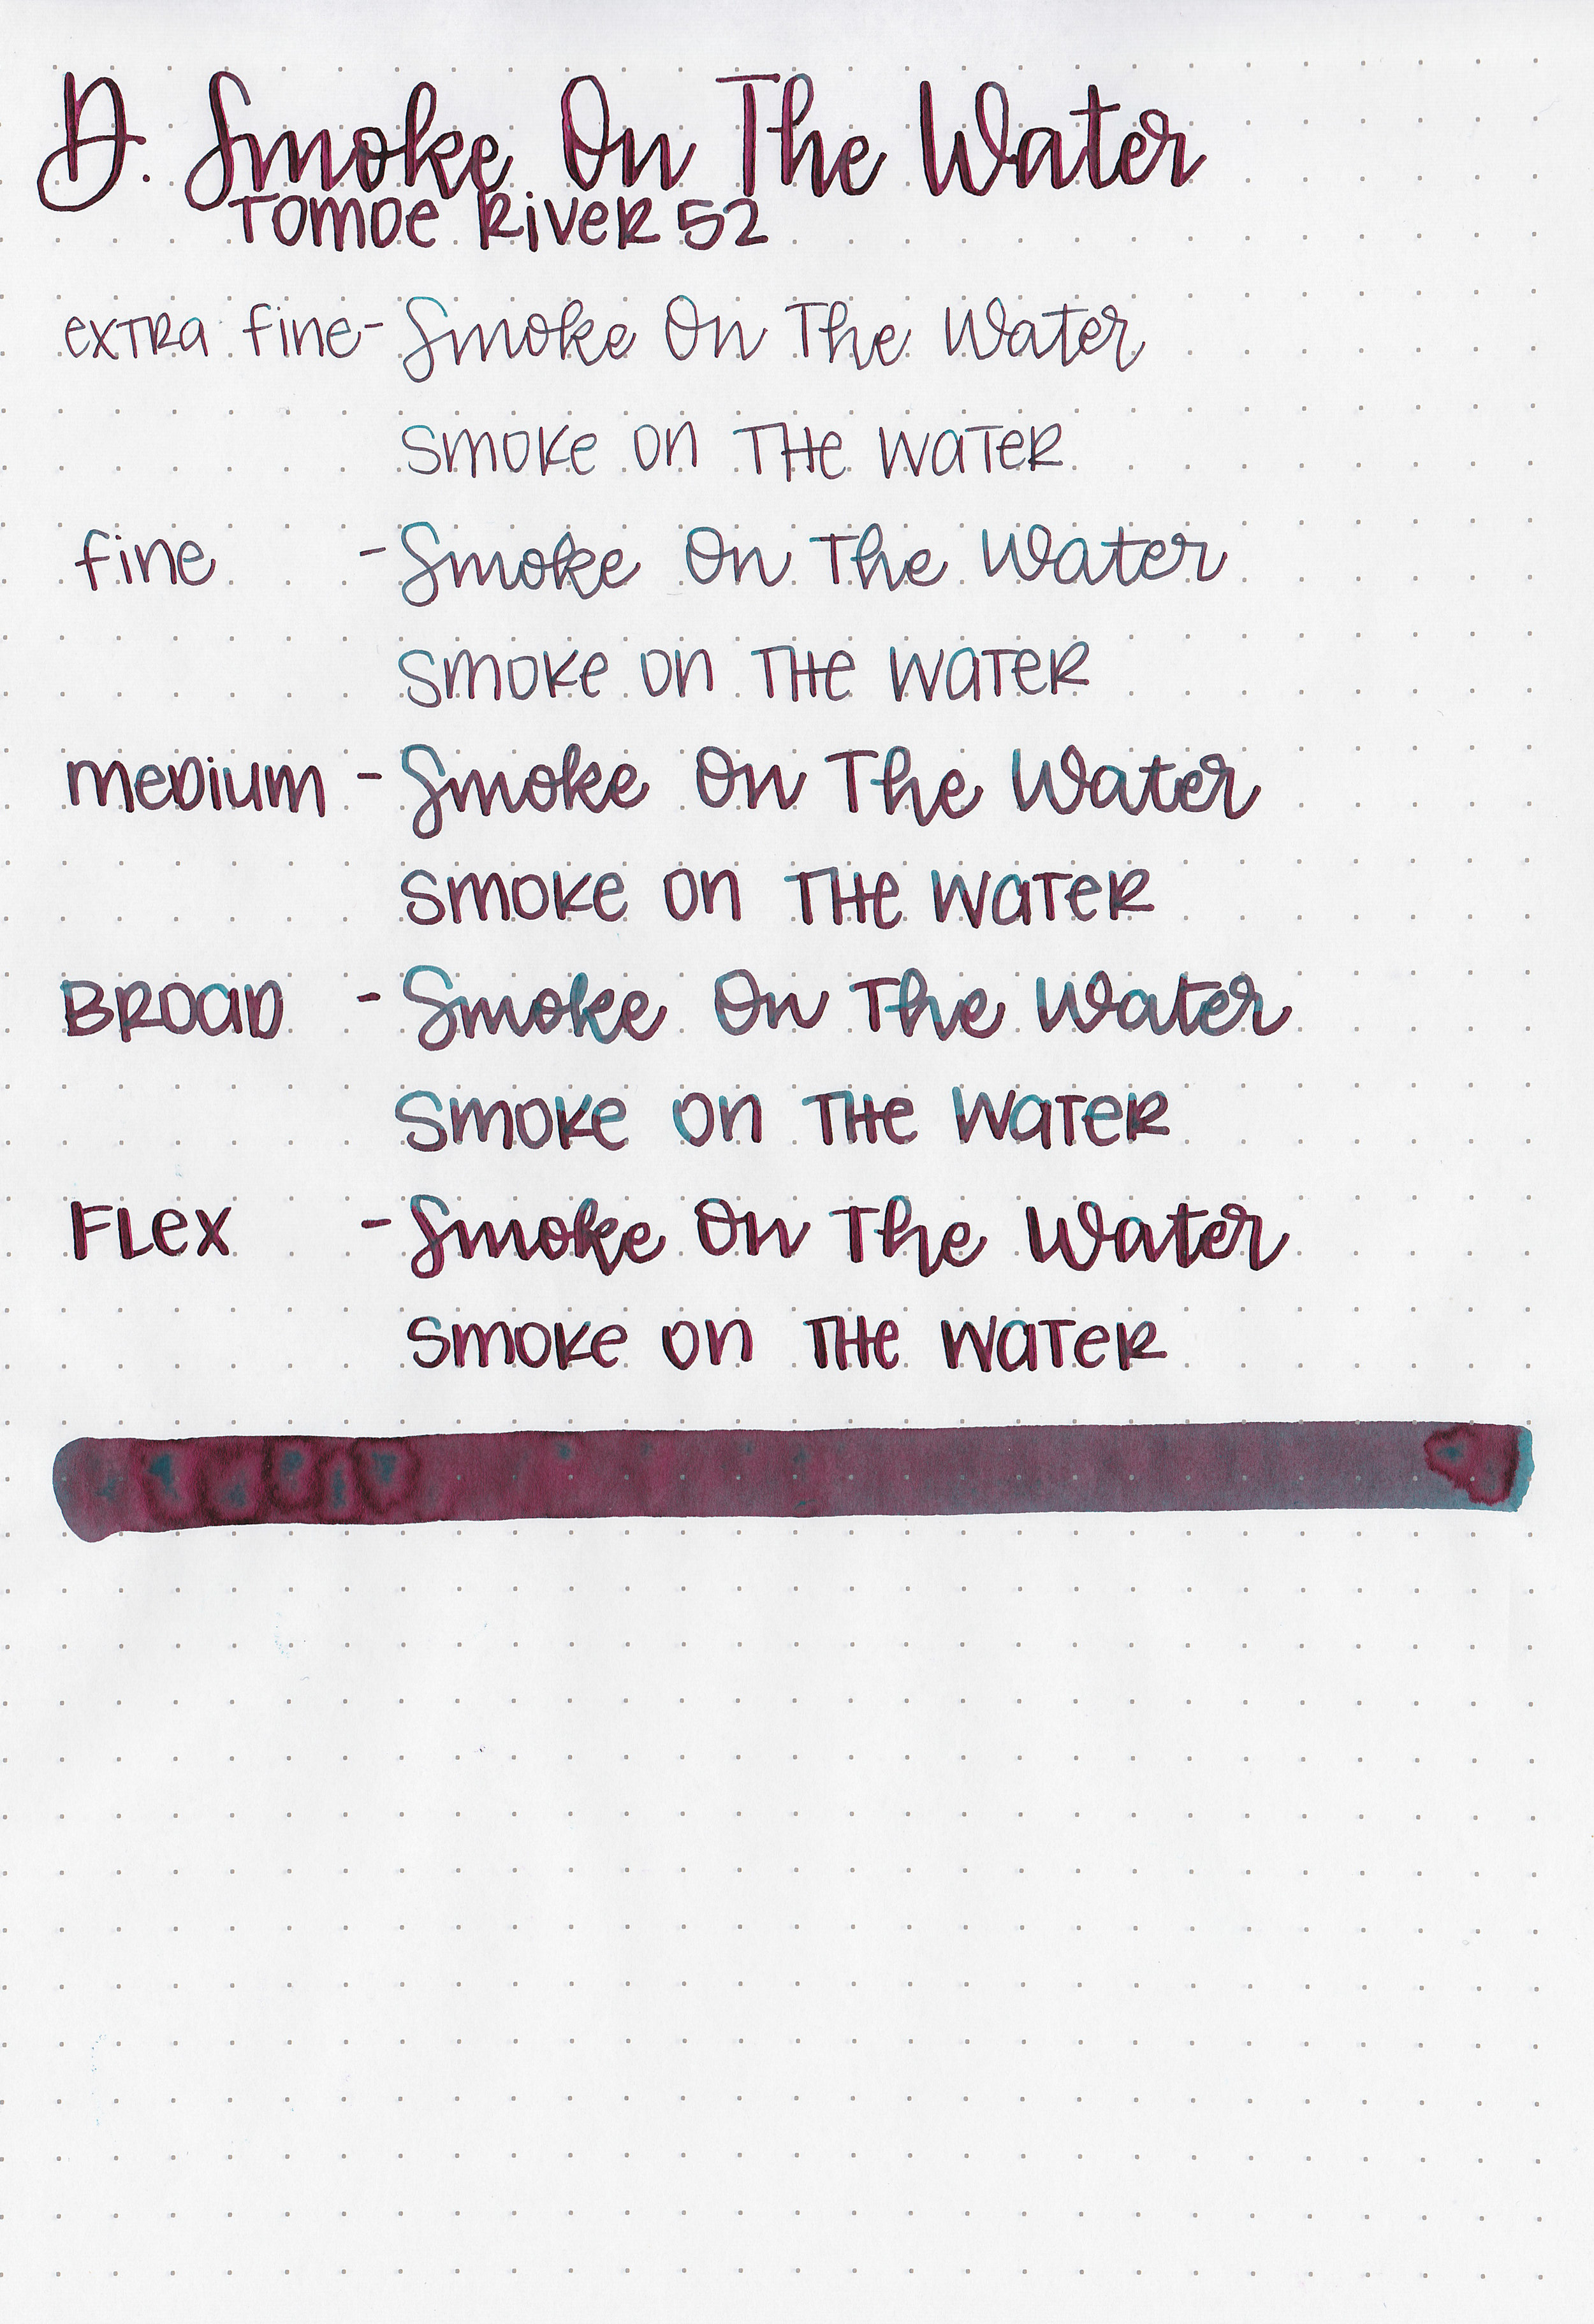 D. Smoke On The Water
TOMOE RIVER 52
extra fine - Smoke On The Water
SMOKE ON THE WATER
fine - Smoke On The Water
SMOKE ON THE WATER
medium - Smoke On The Water
SMOKE ON THE WATER
BROAD - Smoke On The Water
SMOKE ON THE WATER
FLEX - Smoke On The Water
SMOKE ON THE WATER